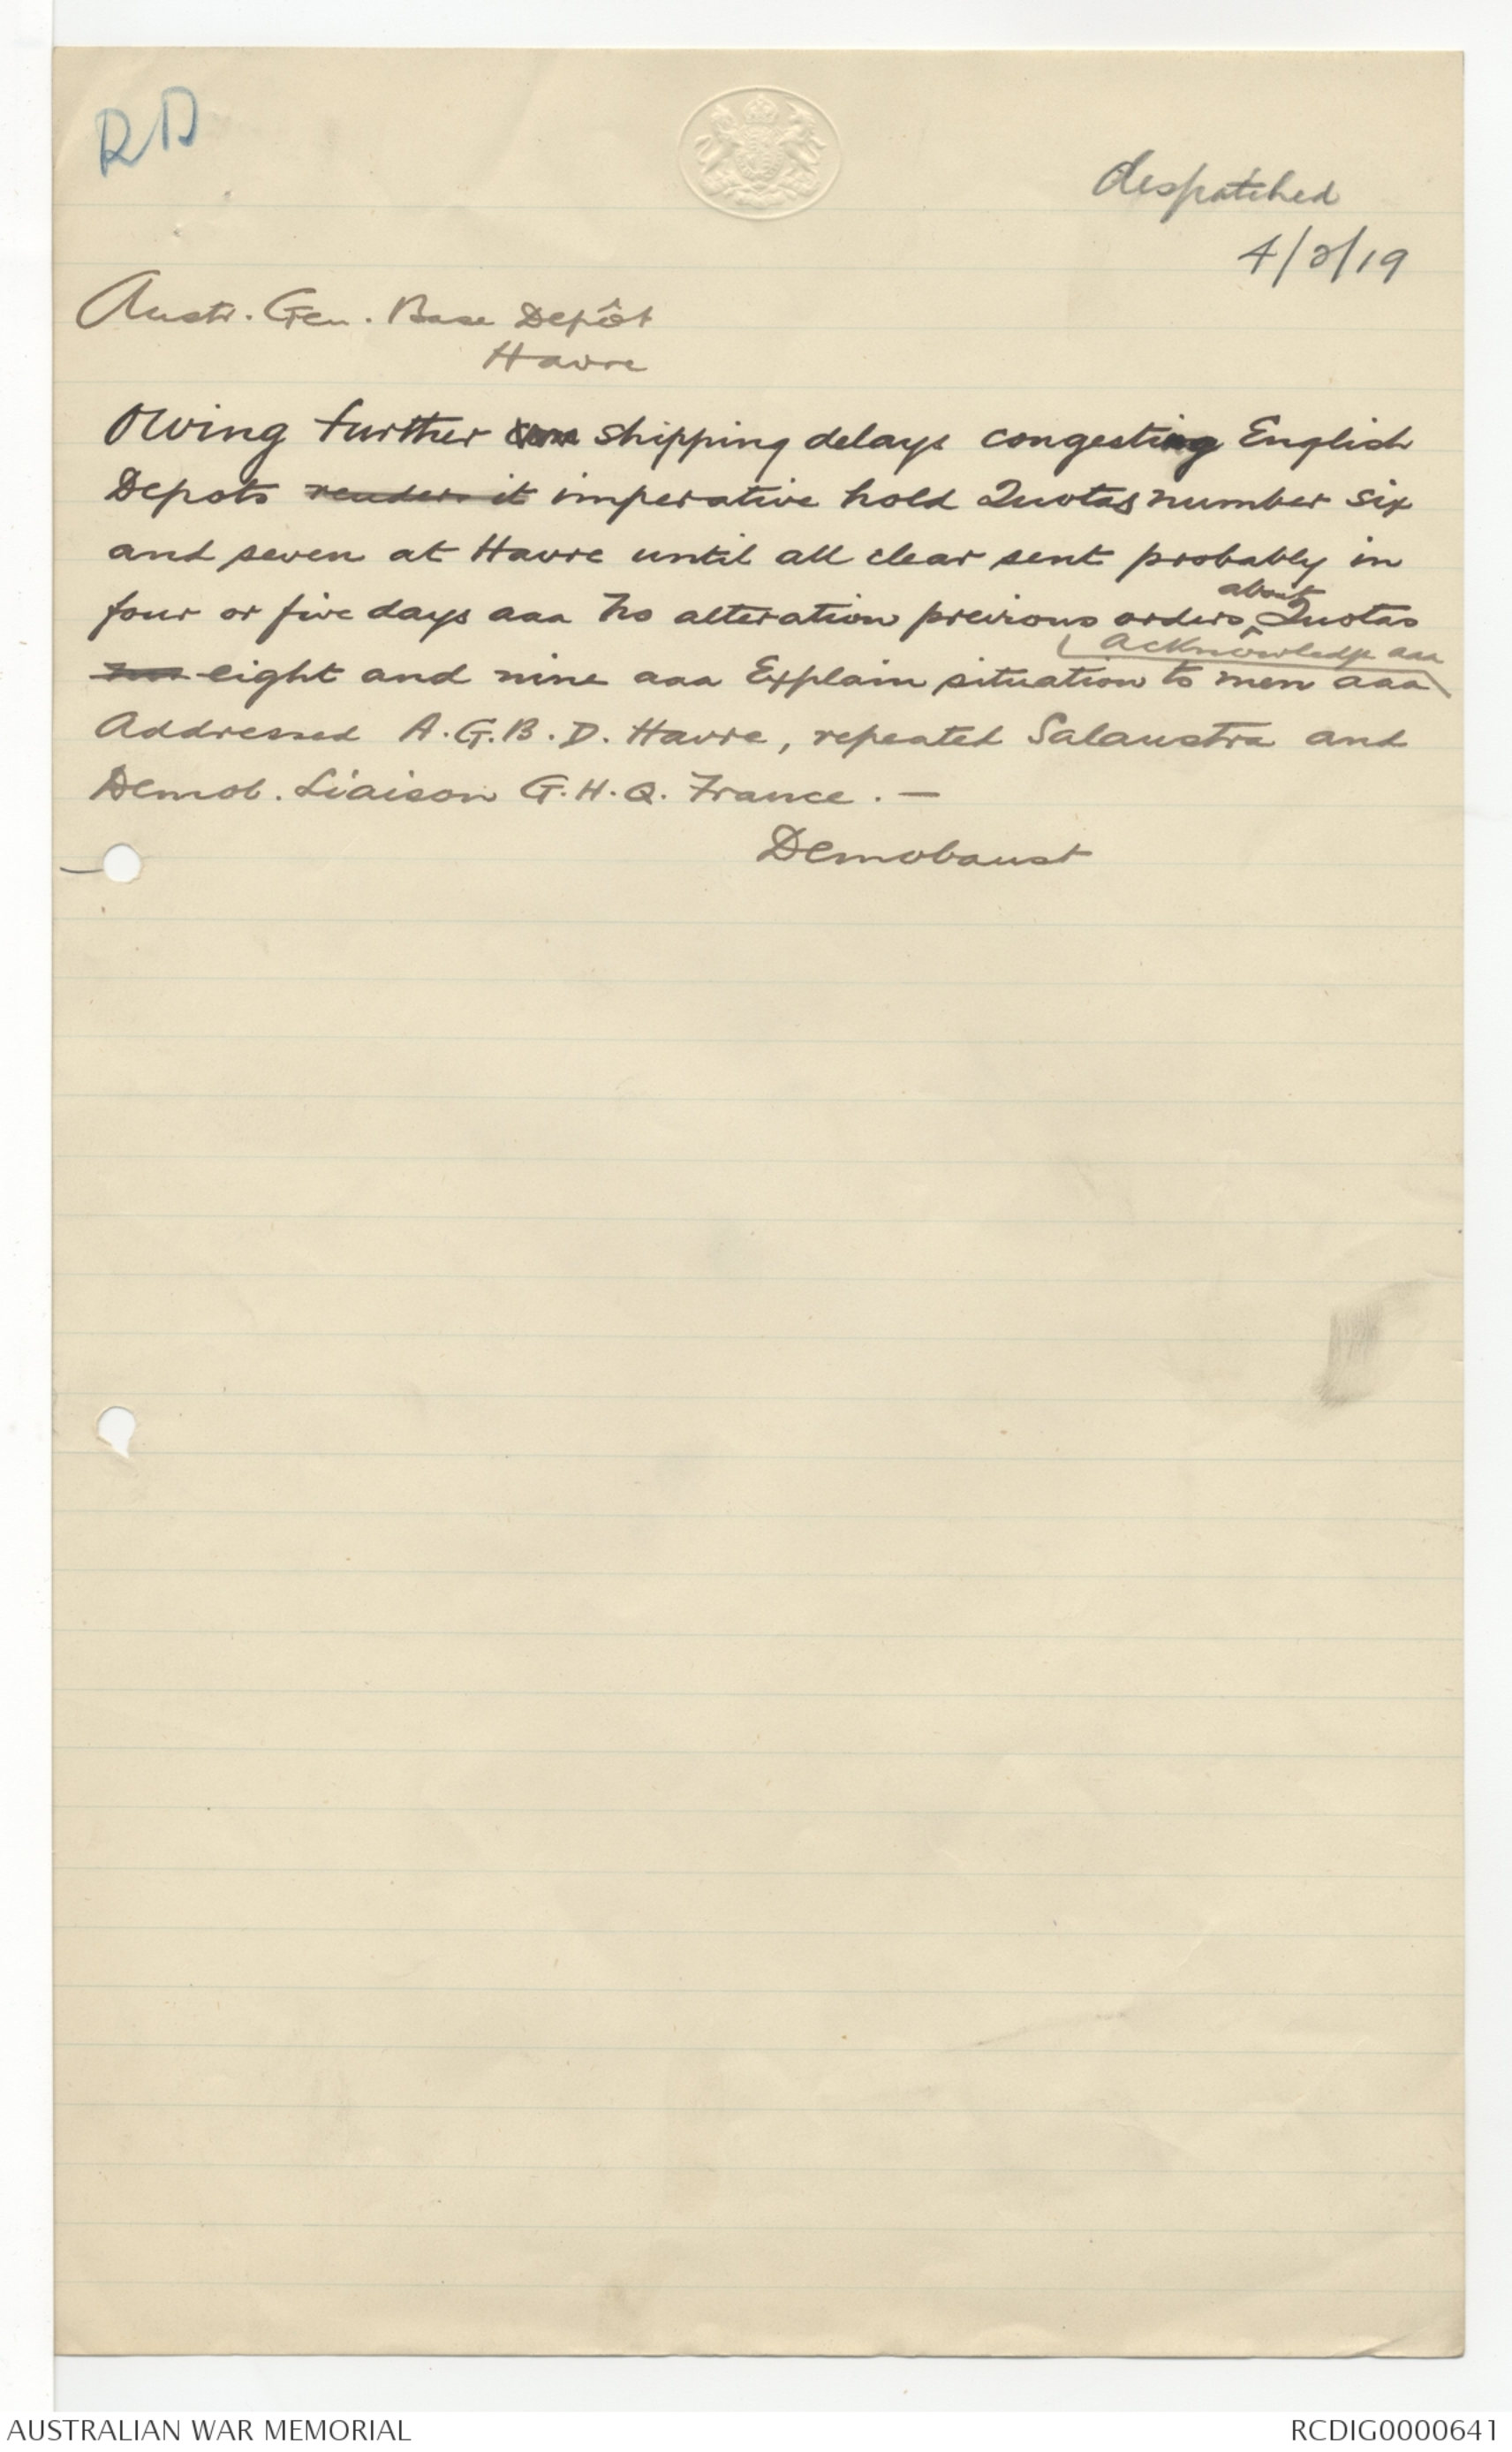 RD
despatched
4/2/19
Austr. Gen. Base Depôt
Havre
Owing further shipping delays congesting English
Depots render it imperative hold Quotas number six
and seven at Havre until all clear sent probably in
four or five days aaa No alteration previous orders about Quotas
acknowledge aaa
eight and nine aaa Explain situation to men aaa
Addressed A.G.B.D. Havre, repeated Salaustra and
Demob. Liaison G.H.Q. France. —
Demobaust
AUSTRALIAN WAR MEMORIAL
RCDIG0000641